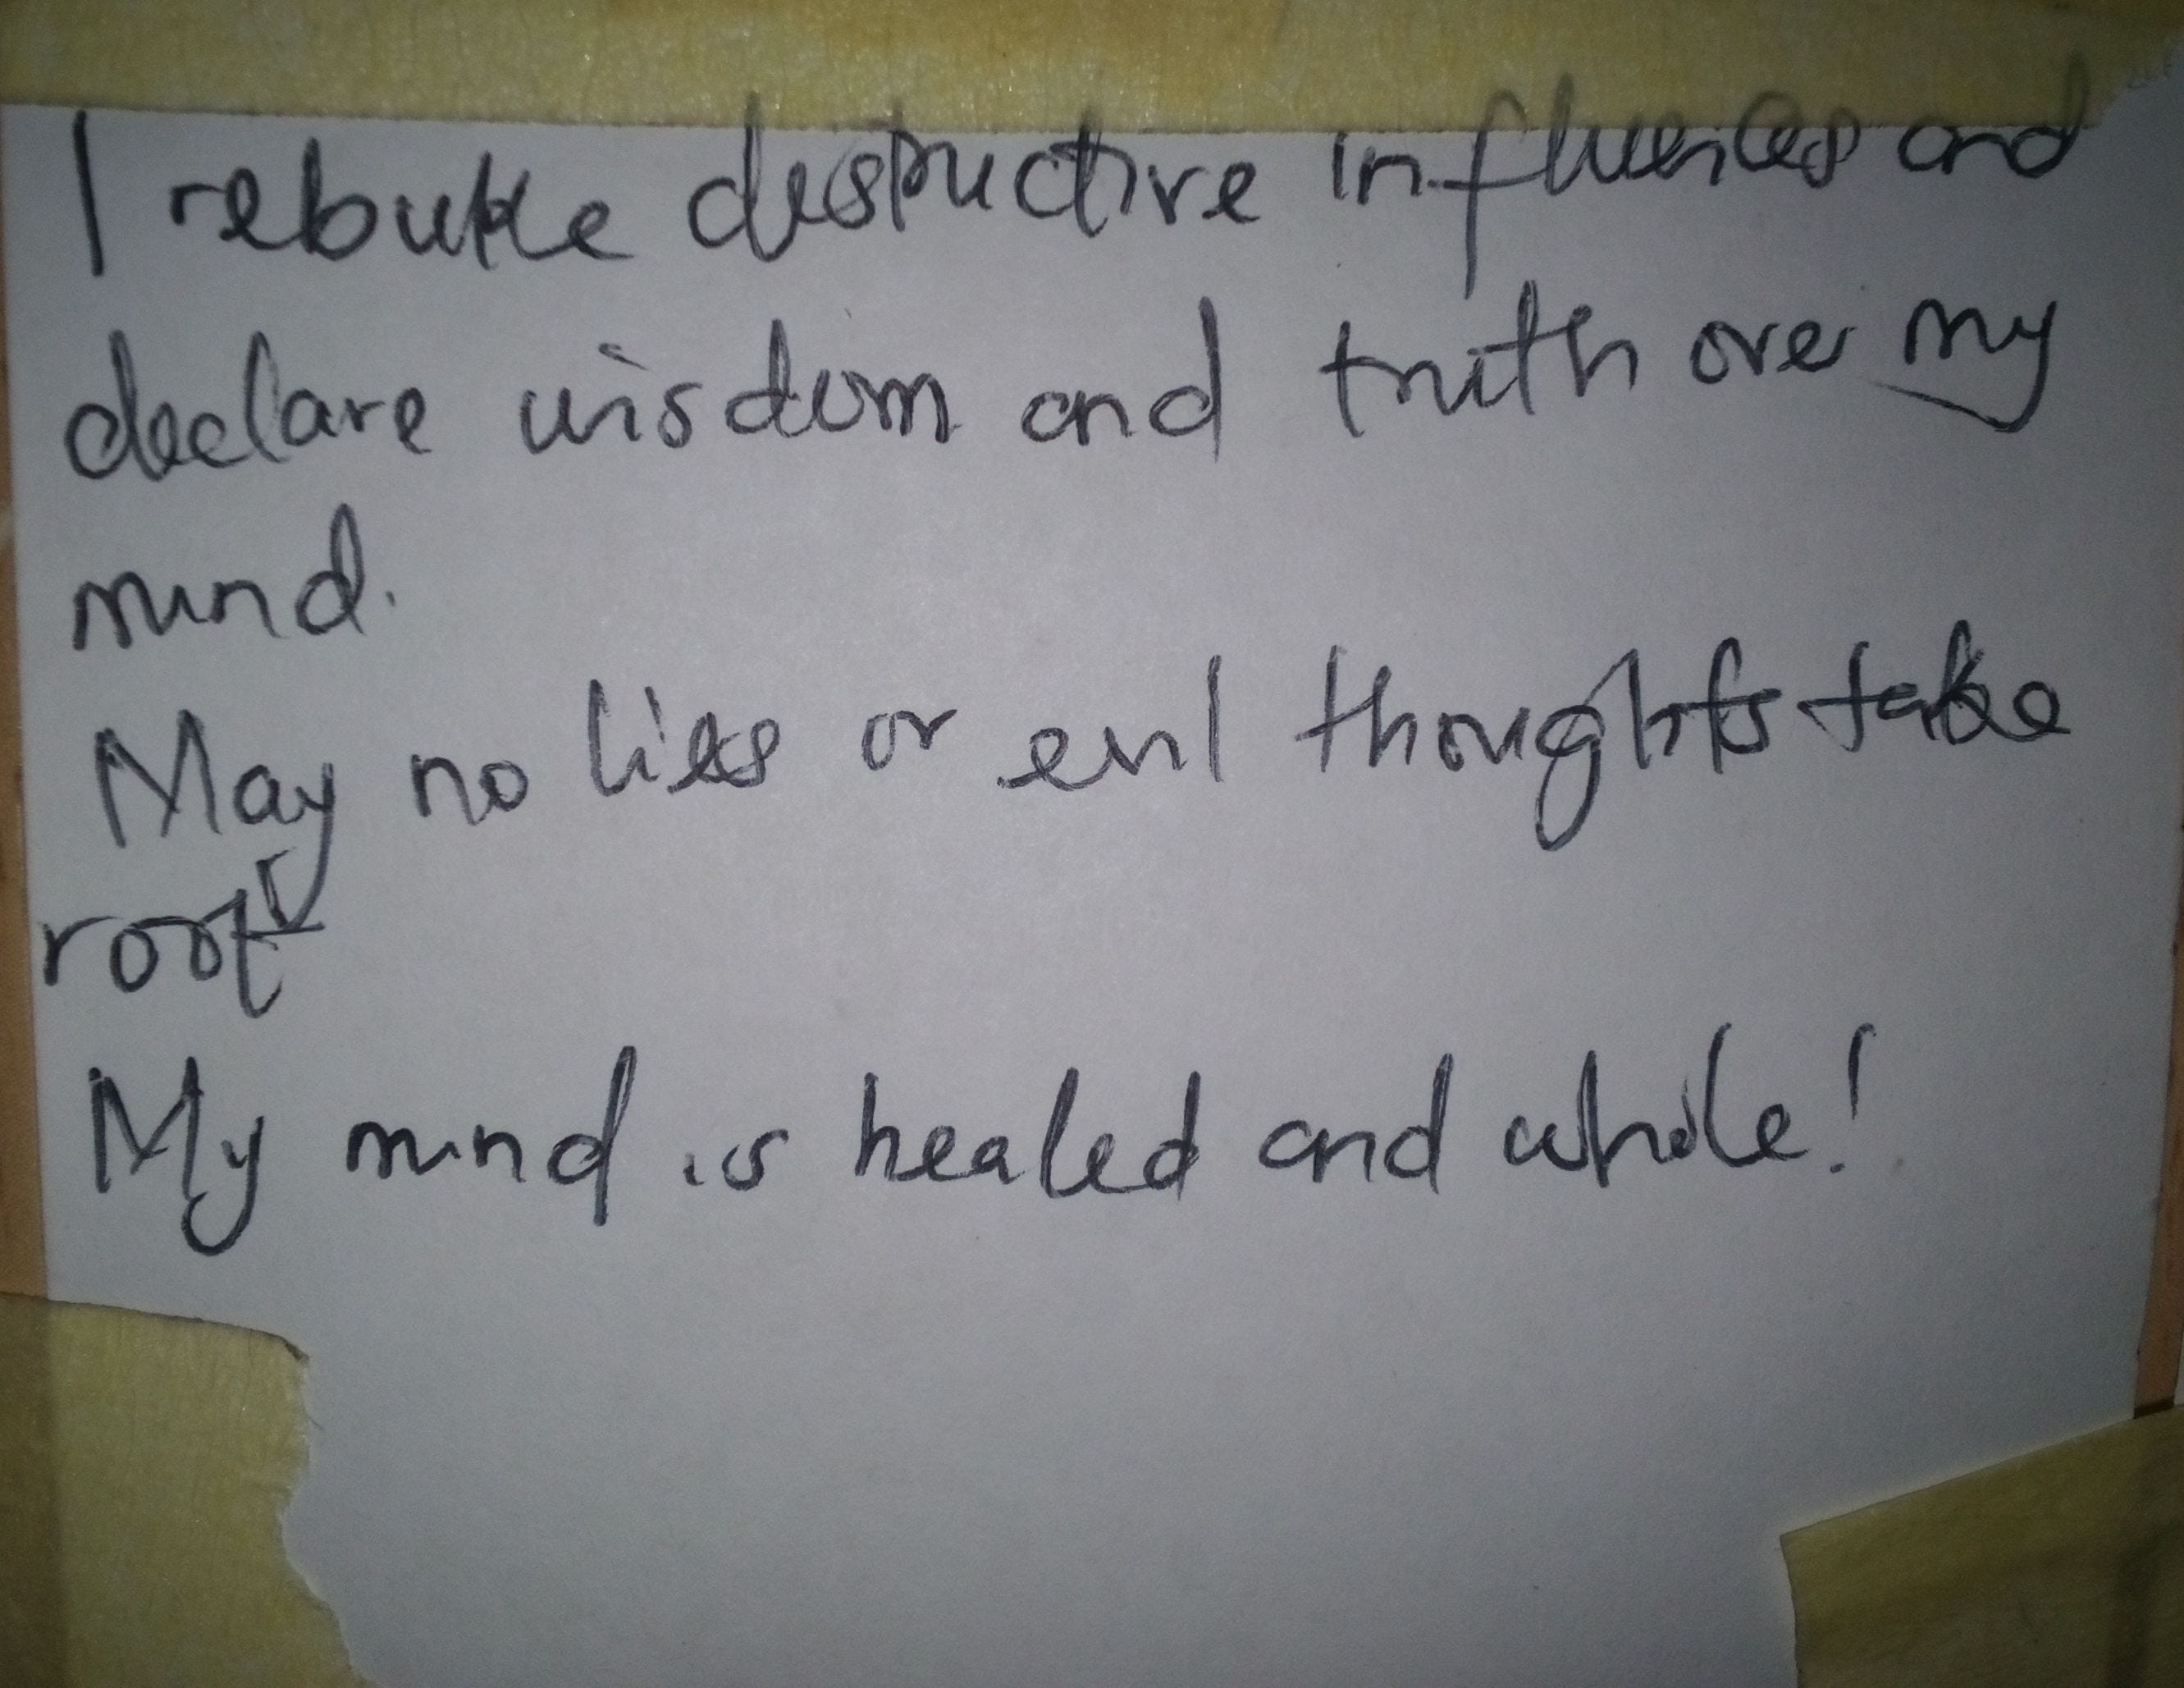 I rebuke destructive influences and
declare wisdom and truth over my
mind.
May no lies or evil thoughts take
root
My mind is healed and whole!